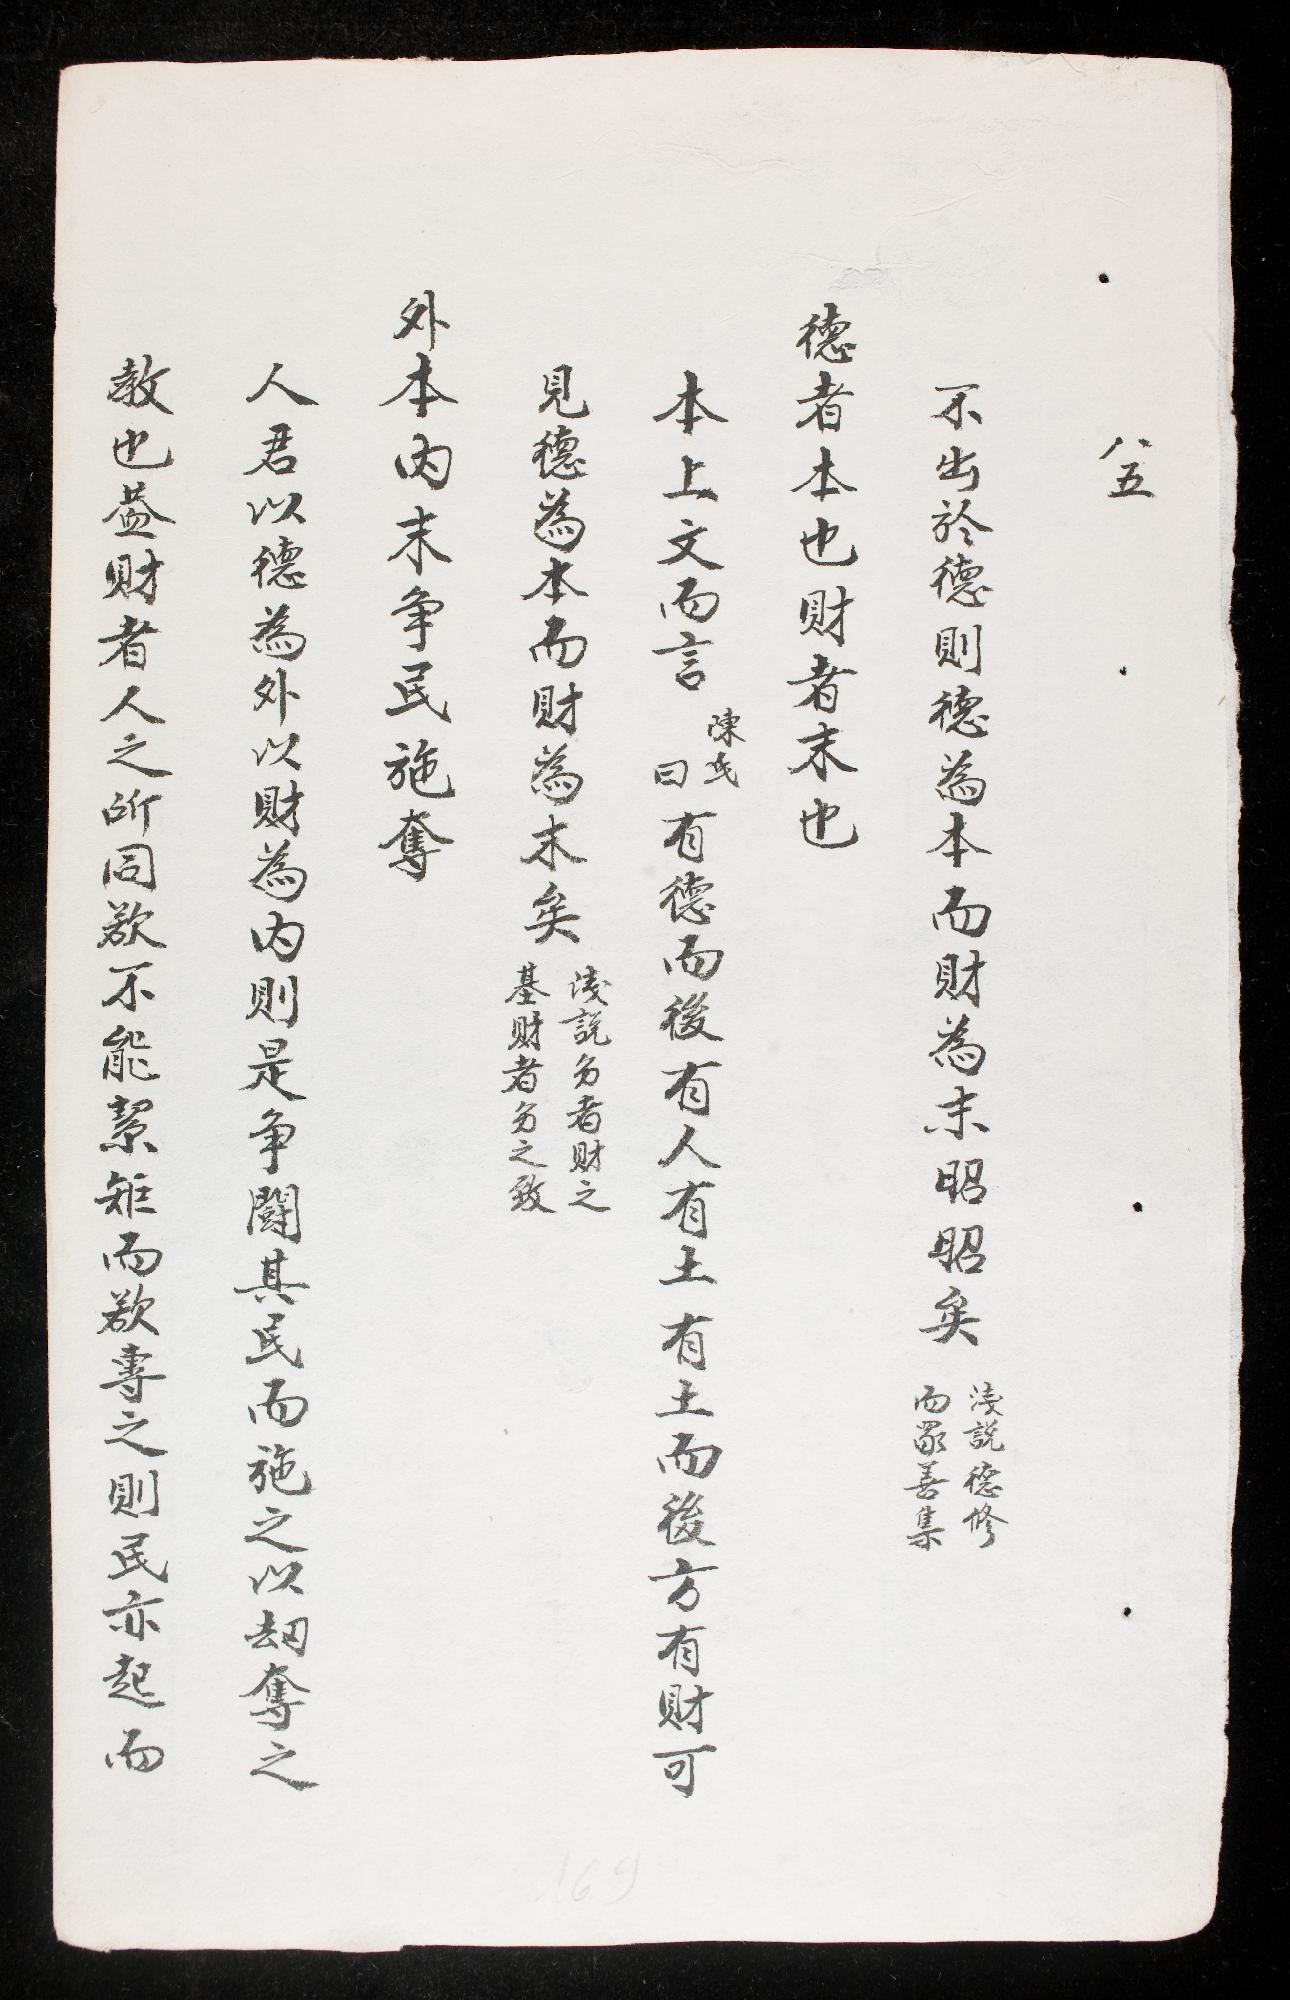 八五
不出於德則德為本而財為末昭昭矣 淺說德修
而眾善集
德者本也財者末也
本上文而言 陳氏
曰 有德而後有人有土有土而後方有財可
見德為本而財為末矣 淺說 者財之
基財者 之致
外本內末争民施奪
人君以德為外以財為內則是争鬪其民而施之以刼奪之
教也盖財者人之所同欲不能絜矩而欲專之則民亦起而
169